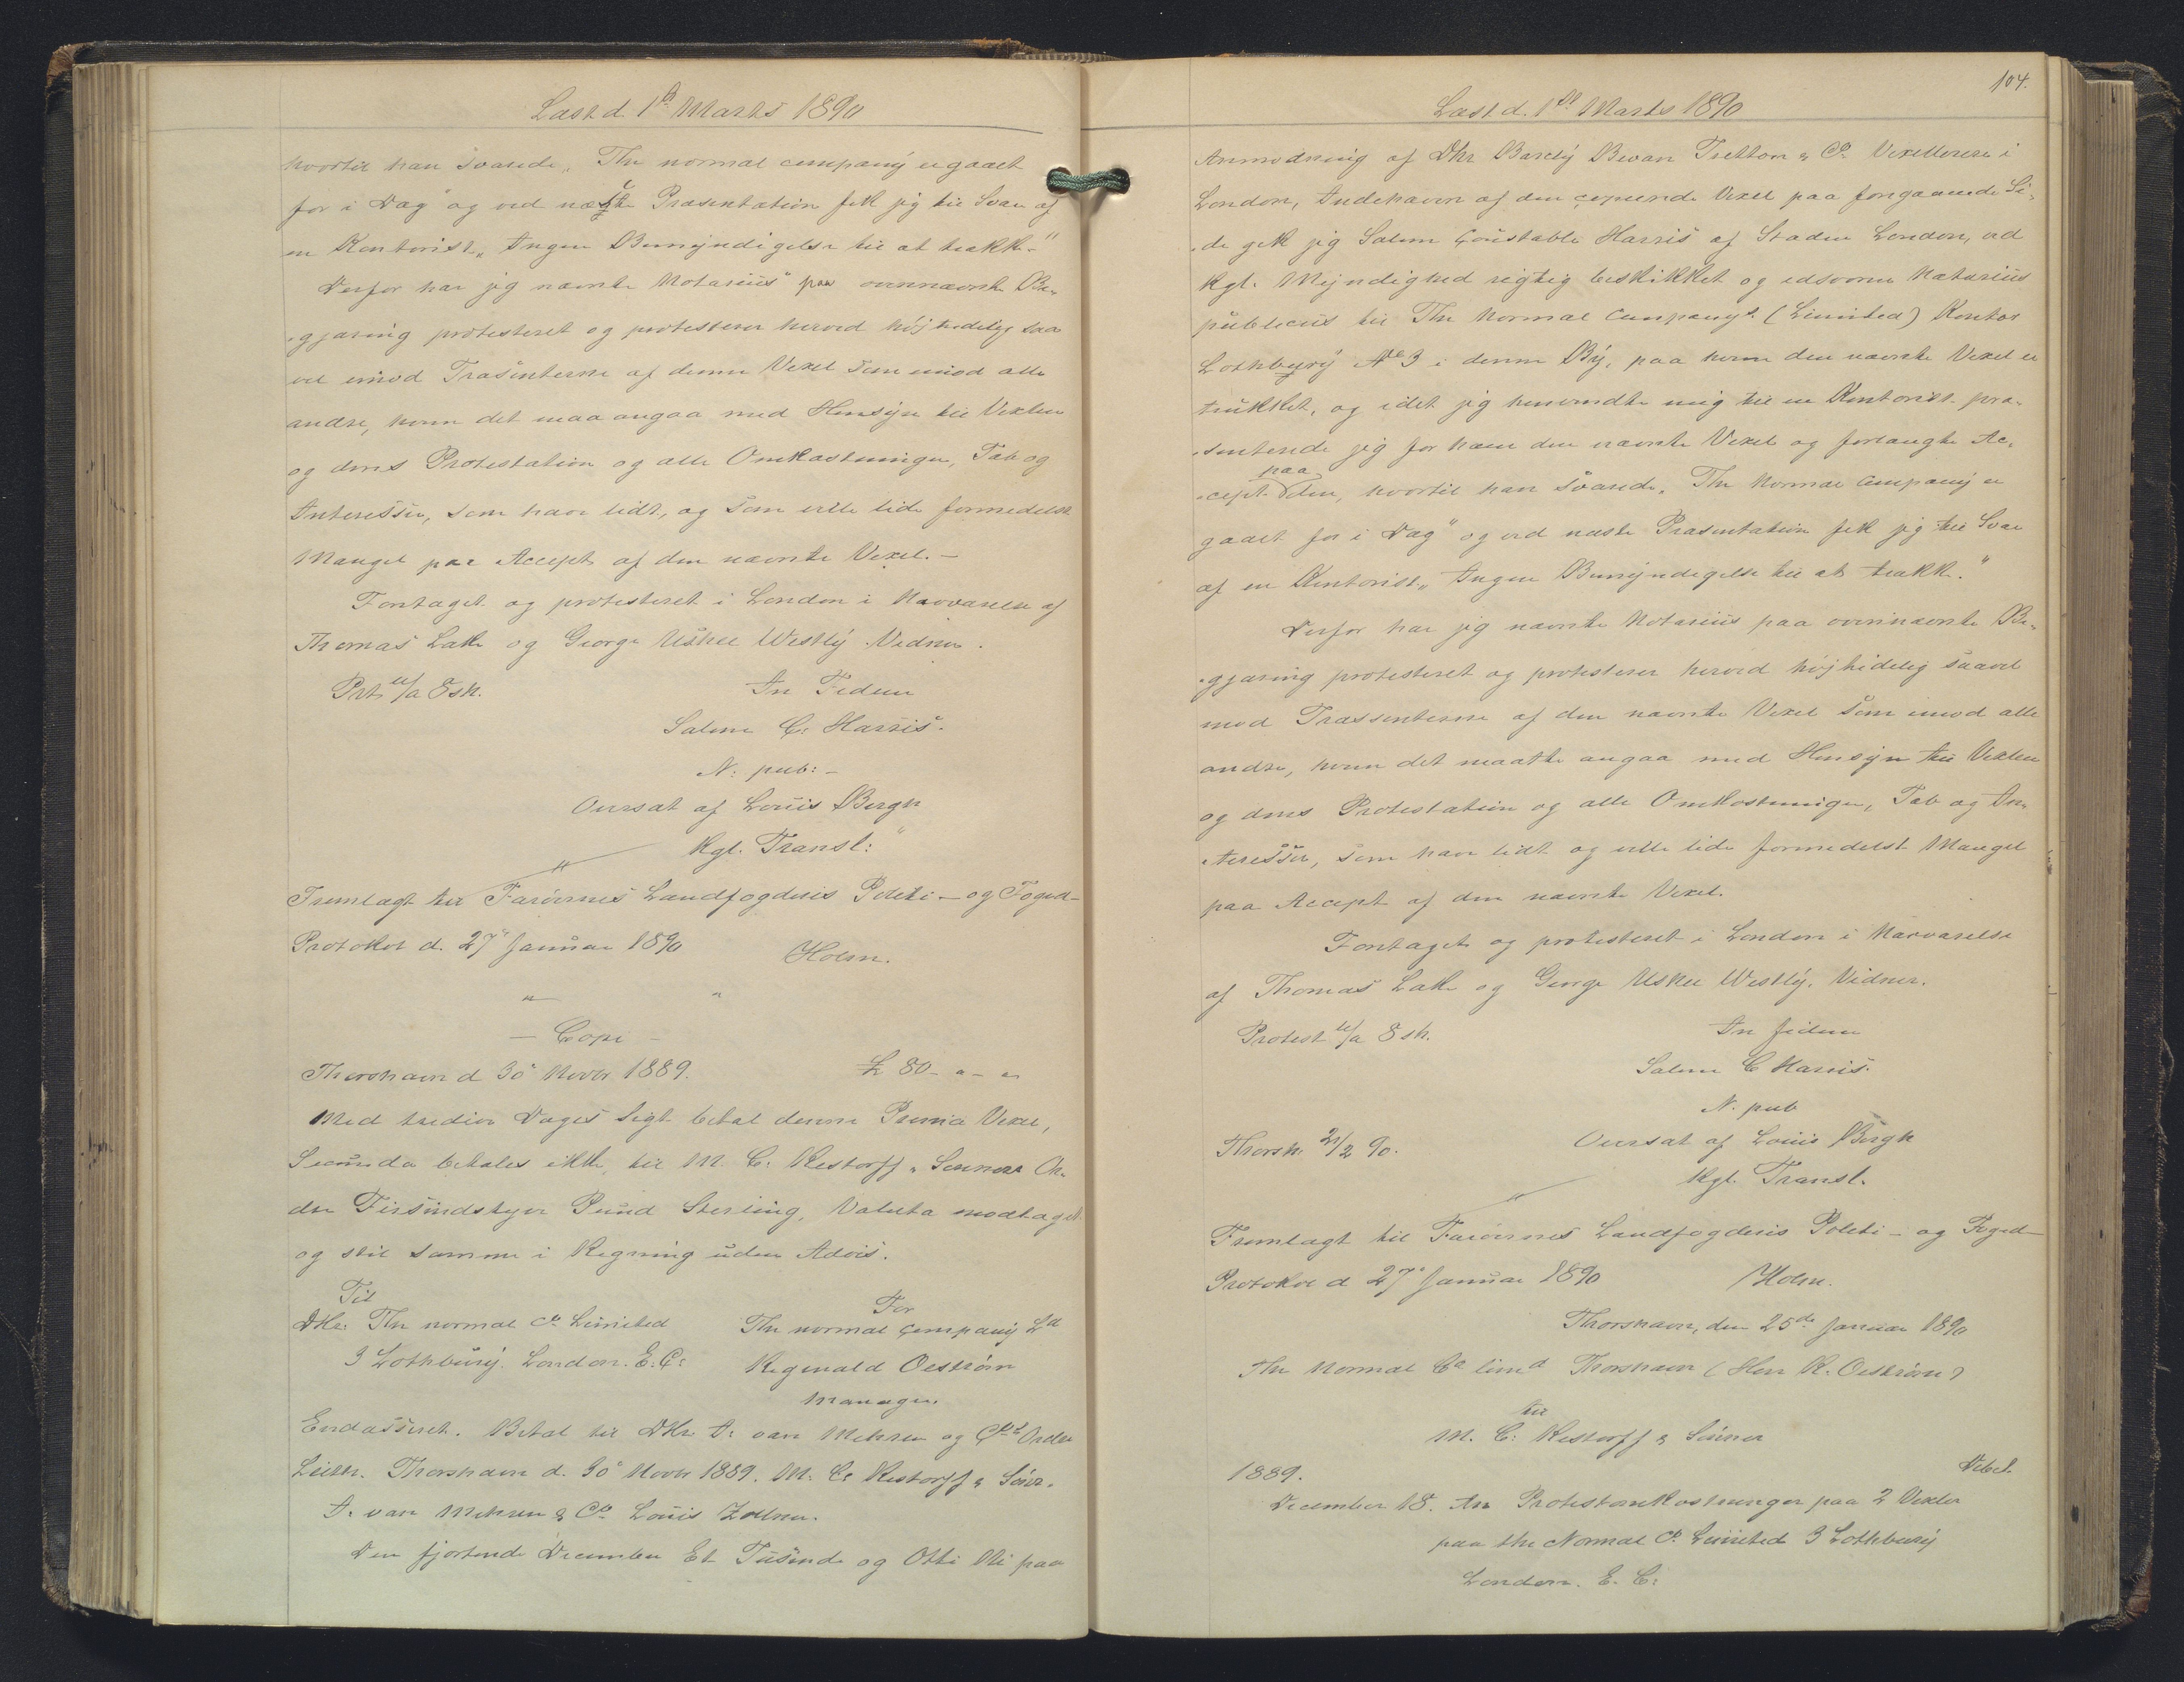 Læst d. 1ste Marts 1890
hvortil han svarede „The normal company er gaaet
for i Dag" og ved næste Præsentation fik jeg til Svar af
en Kontorist „Ingen Bemyndigelse til at trække."
Derfor har jeg nævnte Notarius paa ovennævnte Be-
gjæring protesteret og protesterer herved højtidelig saa
vel imod Trasenterne af denne Vexel som imod alle
andre, hvem det maa angaa med Hensyn til Vexlen
og dens Protestation og alle Omkostninger, Tab og
Interesser, som have lidt, og som ville lide formedelst
Mangel paa Accept af den nævnte Vexel. —
Foretaget og protesteret i London i Nærværelse af
Thomas Lake og George Usher Westly Vidner.
Prot. 8 sh.
In Fidem
Salem C: Harris.
N: pub: —
Oversat af Louis Bergh
Kgl. Transl:"
Fremlagt til Færöernes Landfogderis Politi- og Foged-
Protokol d. 27' Januar 1890
Holm.
— Copi —
Thorshavn d 30' Novbr 1889.
£ 80 - " - "
Med tredive Dages Sigt betal denne Prima Vexel,
Secunda betales ikke, til M. C: Restorff & Sönners Or-
dre Firsindstyve Pund Sterling, Valuta modtaget
og stil samme i Regning uden Advis.
Til
DHr. The normal Co Limited
3 Lothbury. London. E. C:
For
The normal company Ld
Reginald Oeström
Manager.
Endosseret. Betal til DHr. A: van Mehren og Co's Ordre
Leith. Thorshavn d. 30' Novbr 1889. M. C: Restorff & Sönr.
A. van Mehren & Co Louis Zöllner.
Den fjortende December Et Tusinde og Otte Ni paa
104.
Læst d. 1ste Marts 1890
Anmodning af DHr Barcly Bevan Tretton & Co. Vexellerere i
London, Indehavere af den copierede Vexel paa foregaaende Si-
de gik jeg Salem Constable Harris af Staden London, ved
Kgl. Myndighed rigtig beskikket og edsvorne Notarius
publicus til The Normal Company's (Limited) Kontor
Lothbury No 3 i denne By, paa hvem den nævnte Vexel er
trukket, og idet jeg henvendte mig til en Kontorist præ-
senterede jeg for ham den nævnte Vexel og forlangte Ac-
cept paa den, hvortil han svarede „The Normal Company er
gaaet for i Dag" og ved næste Præsentation fik jeg til Svar
af en Kontorist „Ingen Bemyndigelse til at trække."
Derfor har jeg nævnte Notarius paa ovennævnte Be-
gjæring protesteret og protesterer herved højtidelig saavel
mod Trassenterne af den nævnte Vexel som imod alle
andre, hvem det maatte angaa med Hensyn til Vexlen
og dens Protestation og alle Omkostninger, Tab og In-
teresser, som have lidt og ville lide formedelst Mangel
paa Accept af den nævnte Vexel.
Foretaget og protesteret i London i Nærværelse
af Thomas Lake og George Usher Westly. Vidner.
Protest 8 sh.
In fidem
Salem C Harris.
N. pub
Thorsh. 21/2 90.
Oversat af Louis Bergh
Kgl. Transl.
Fremlagt til Færöernes Landfogderis Politi- og Foged-
Protokol d 27' Januar 1890
Holm.
Thorshavn, den 25de Januar 1890
The Normal Co limd Thorshavn (Herr R. Oeström)
til
M. C: Restorff & Sönner
1889.
Debet
December 18. An Protestomkostninger paa 2 Vexler
paa the Normal Co Limited 3 Lothbury
London. E. C: